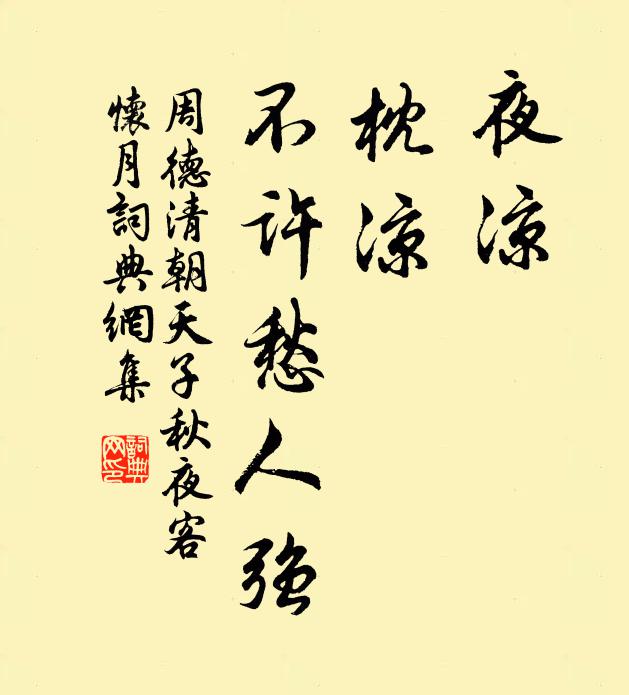 夜凉
枕凉
不許愁人強
周德清朝天子秋夜客
懷月詞典網集
詞典
网印